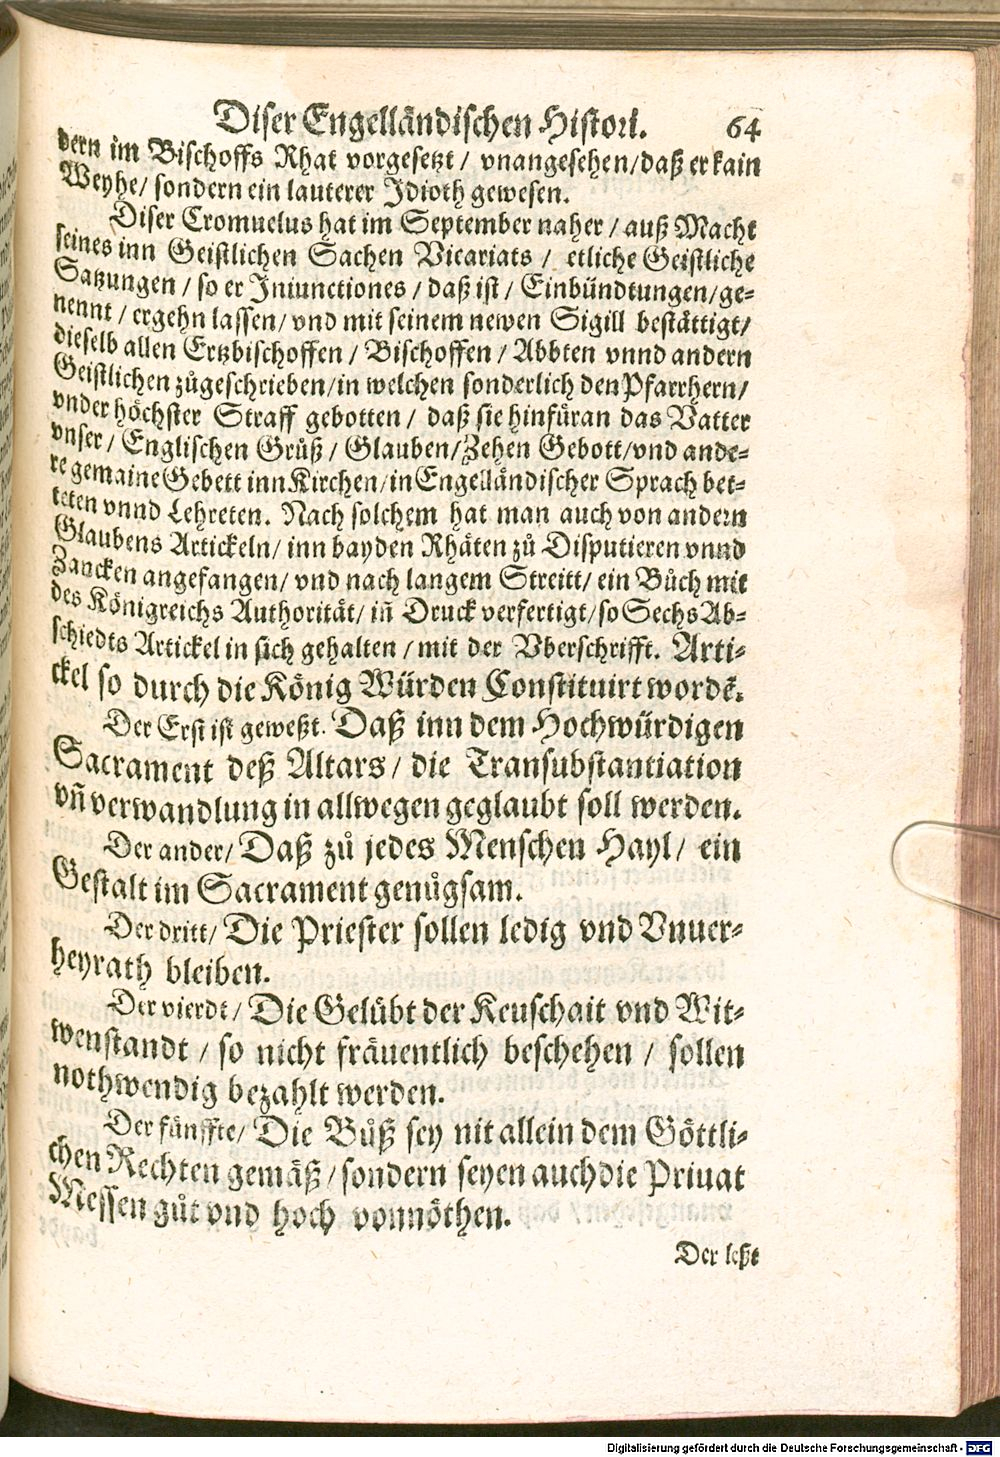 Diser Engelländischen Histori. 64
dern im Bischoffs Rhat vorgesetzt / vnangesehen / daß er kain
Weyhe / sondern ein lauterer Idioth gewesen.
Diser Cromuelus hat im September naher / auß Macht
seines inn Geistlichen Sachen Vicariats / etliche Geistliche
Satzungen / so er Iniunctiones / daß ist / Einbündtungen / ge-
nennt / ergehn lassen / vnd mit seinem newen Sigill bestättigt /
dieselb allen Ertzbischoffen / Bischoffen / Abbten vnnd andern
Geistlichen zůgeschrieben / in welchen sonderlich den Pfarrhern /
vnder höchster Straff gebotten / daß sie hinfüran das Vatter
vnser / Englischen Grůß / Glauben / Zehen Gebott / vnd ande-
re gemaine Gebett inn Kirchen / in Engelländischer Sprach bet-
teten vnnd Lehreten. Nach solchem hat man auch von andern
Glaubens Artickeln / inn bayden Rhäten zů Disputieren vnnd
Zancken angefangen / vnd nach langem Streitt / ein Bůch mit
des Königreichs Authorität / in̄ Druck verfertigt / so Sechs Ab-
schiedts Artickel in sich gehalten / mit der Vberschrifft. Arti-
ckel so durch die König Würden Constituirt wordē.
Der Erst ist geweßt. Daß inn dem Hochwürdigen
Sacrament deß Altars / die Transubstantiation
vn̄ verwandlung in allwegen geglaubt soll werden.
Der ander / Daß zů jedes Menschen Hayl / ein
Gestalt im Sacrament genůgsam.
Der dritt / Die Priester sollen ledig vnd Vnuer-
heyrath bleiben.
Der vierdt / Die Gelübt der Keuschait vnd Wit-
wenstandt / so nicht fräuentlich beschehen / sollen
nothwendig bezahlt werden.
Der fünffte / Die Bůß sey nit allein dem Göttli-
chen Rechten gemäß / sondern seyen auch die Priuat
Messen gůt vnd hoch vonnöthen.
Der letzt
Digitalisierung gefördert durch die Deutsche Forschungsgemeinschaft - DFG